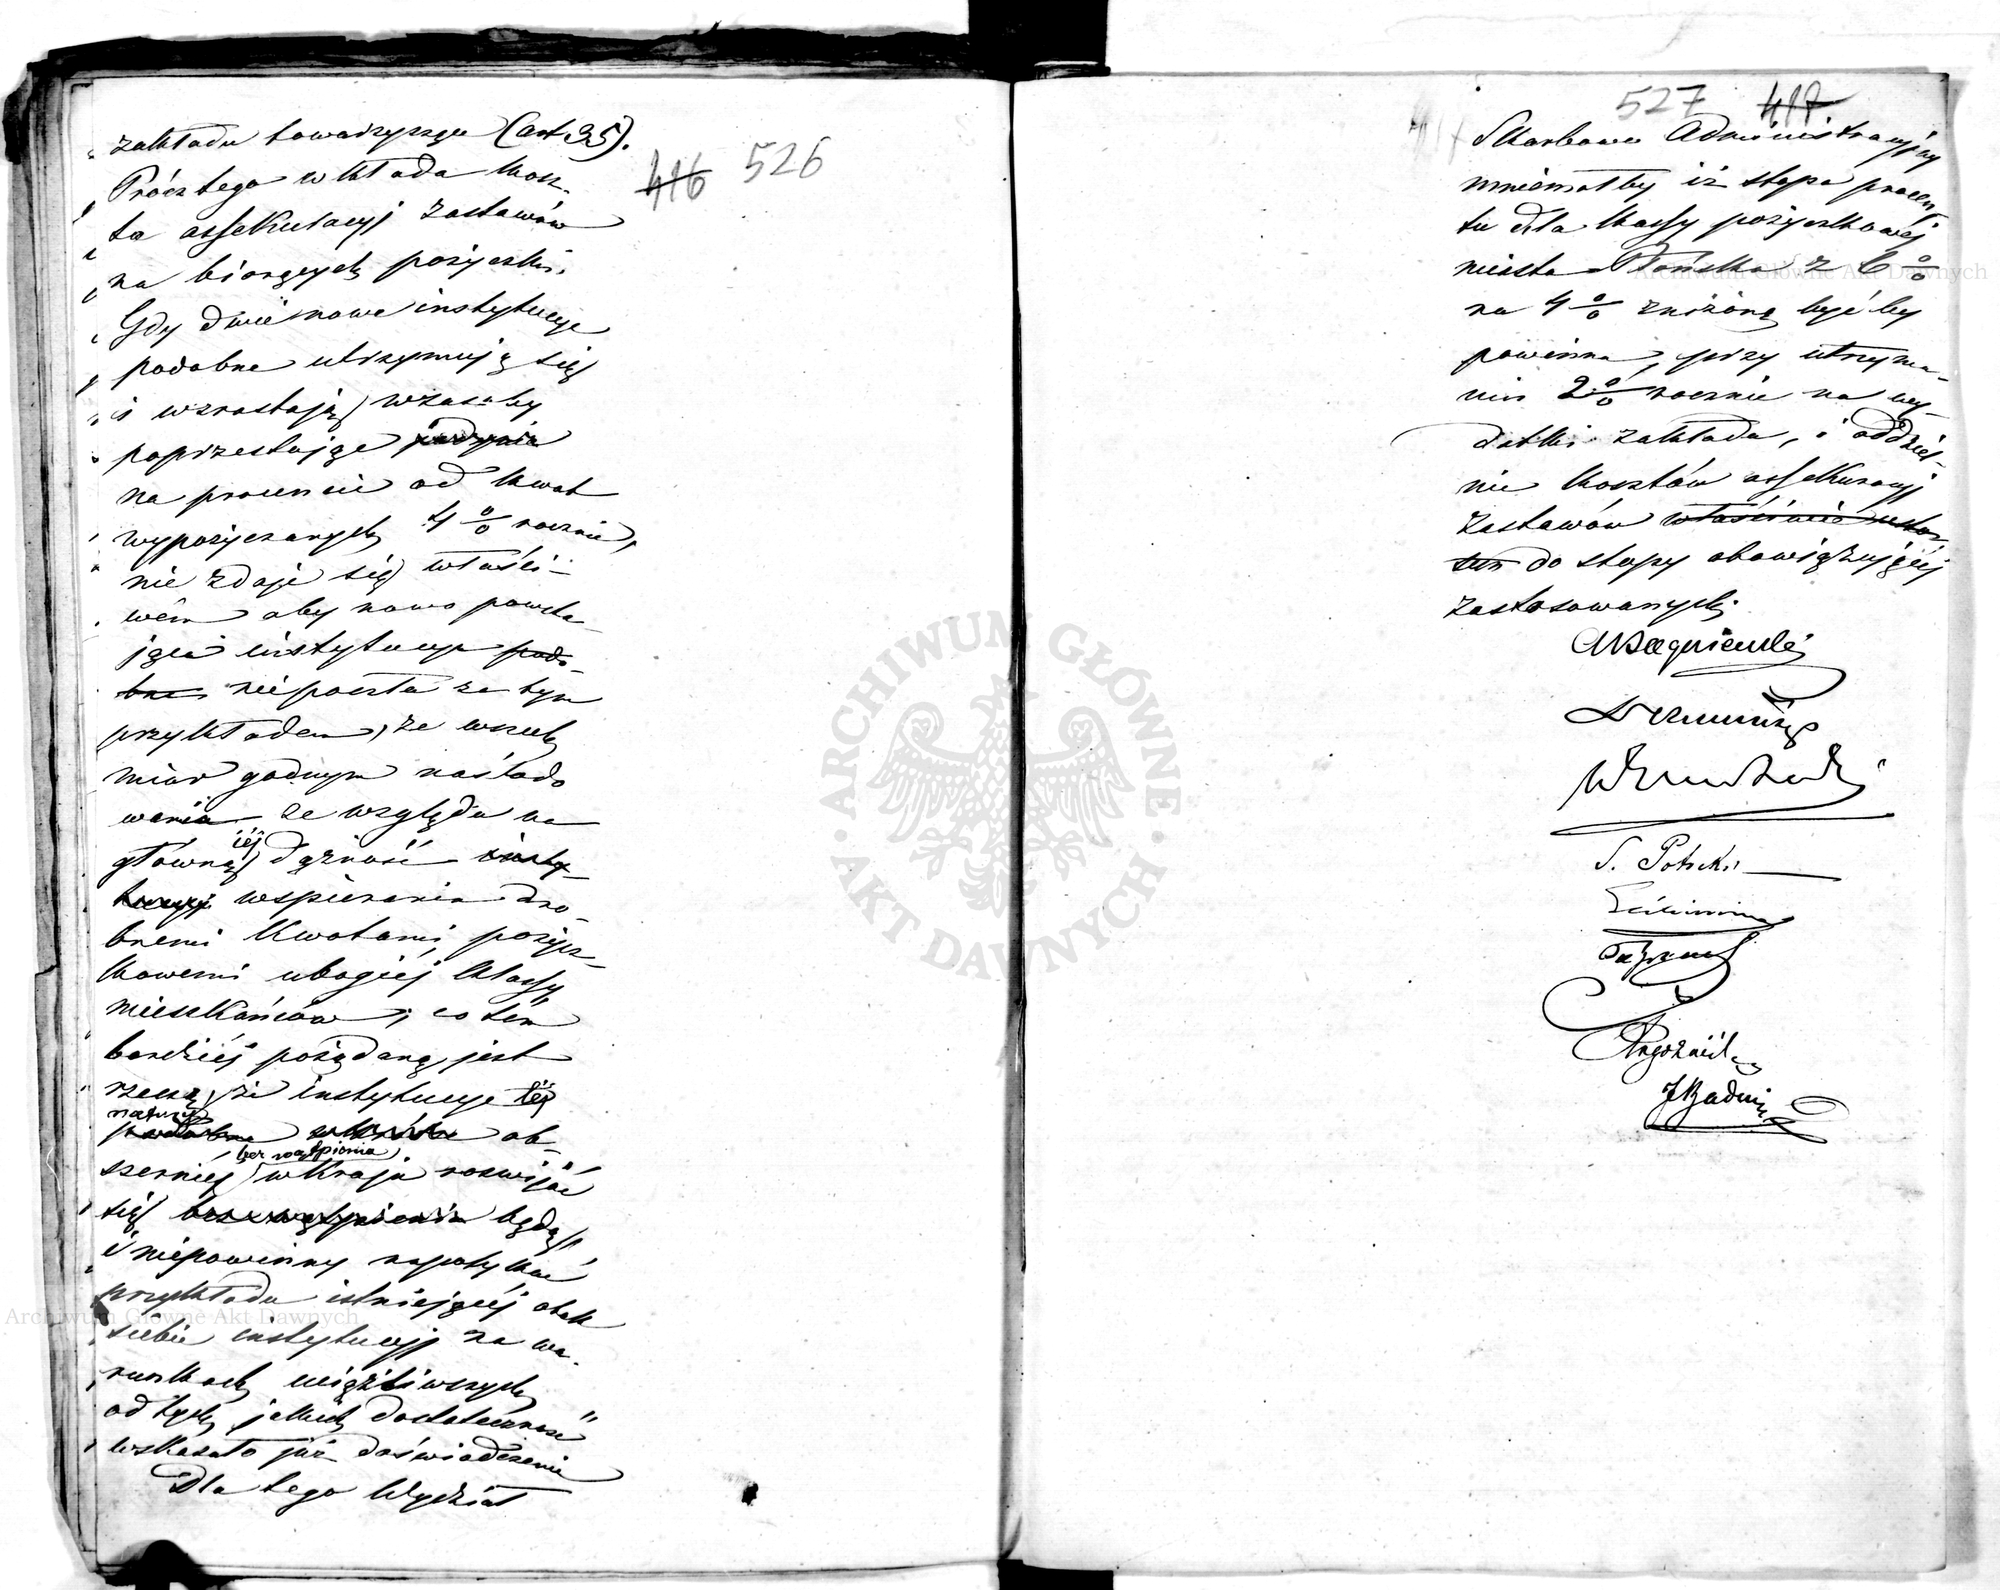 416 526
zakładu towarzyszyć (art 35).
Prócz tego wkłada kosz-
ta assekuracyj zastawów
na biorących pożyczki.
Gdy dwie nowe instytucye
podobne utrzymują się
i wzrastają w zasoby
poprzestając jedynie
na procencie od kwot
wypożyczanych 4 % rocznie,
nie zdaje się właści-
wém aby nowo powsta-
jąca instytucya podo-
bna nie poszła za tym
przykładem, ze wszech
miar godnym naślado
wania ze względu na
główną iéj dążność insty-
tucyi wspierania dro-
bnemi kwotami pożycz-
kowemi ubogiej klassy
mieszkańców; co tém
bardziéj pożądaną jest
rzeczą, że instytucye téj
natury podobne ob-
szerniéj bez wątpienia w kraju rozwijać
się bez wątpienia będą
i niepowinny napotykać
przykładu istniejącéj obok
siebie instytucyj na wa-
runkach uciążliwszych
od tych jakich dostateczność
wskazało już doświadczenie
Dla tego Wydział
527 417
Skarbowo Administracyjny
mniemałby iż stopa procen
tu dla kassy pożyczkowéj
miasta Płońska z 6 %
na 4 % zniżoną być by
powinna, przy utrzyma-
niu 2 % rocznie na wy-
datki zakładu, i oddziel-
nie kosztów assekuracyj
zastawów właściwie
do stopy obowiązującéj
zastosowanych.
S. Potocki
J Badeni
Archiwum Główne Akt Dawnych
Archiwum Główne Akt Dawnych
ARCHIWUM GŁÓWNE · AKT DAWNYCH ·